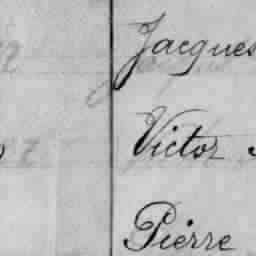 Jacques
Victor
Pierre